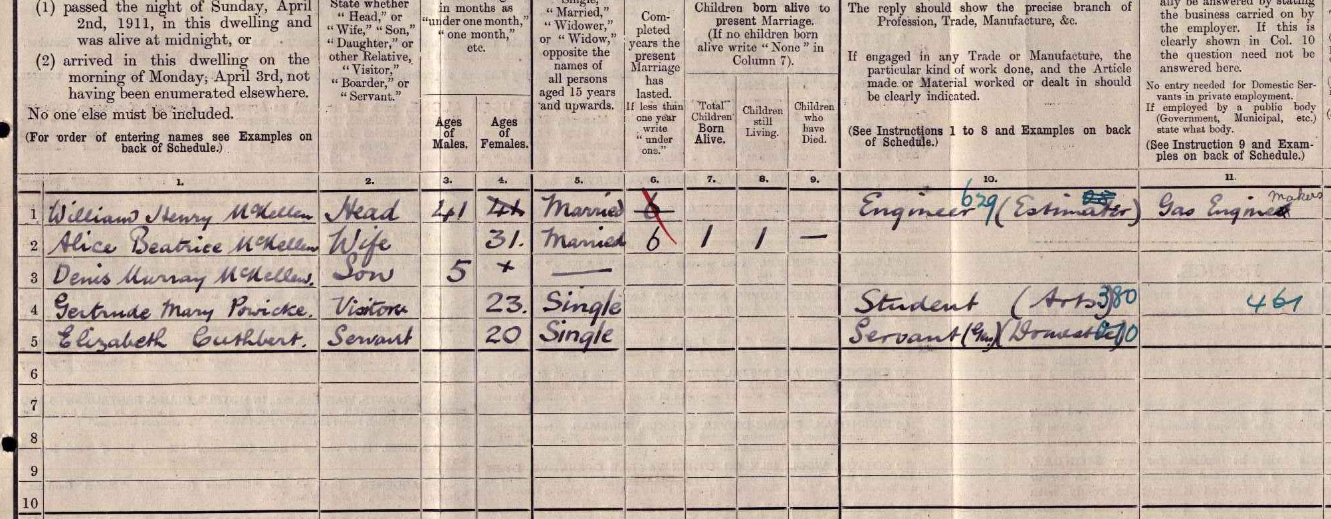 passed the night of Sunday, April
2nd, 1911, in this dwelling and
was alive at midnight, or
(2) arrived in this dwelling on the
morning of Monday, April 3rd, not
having been enumerated elsewhere.
No one else must be included.
(For order of entering names see Examples on
back of Schedule.)
State whether
"Head," or
"Wife," "Son,"
"Daughter," or
other Relative,
"Visitor,"
"Boarder," or
"Servant."
in months as
"under one month,"
"one month,"
etc.
Ages
of
Males.
Ages
of
Females.
"Married,"
"Widower,"
or "Widow,"
opposite the
names of
all persons
aged 15 years
and upwards.
Com-
pleted
years the
present
Marriage
has
lasted.
If less than
one year
write
"under
one."
Children born alive to
present Marriage.
(If no children born
alive write "None" in
Column 7).
Total
Children
Born
Alive.
Children
still
Living.
Children
who
have
Died.
The reply should show the precise branch of
Profession, Trade, Manufacture, &c.
If engaged in any Trade or Manufacture, the
particular kind of work done, and the Article
made or Material worked or dealt in should
be clearly indicated.
(See Instructions 1 to 8 and Examples on back
of Schedule.)
any be answered by stating
the business carried on by
the employer. If this is
clearly shown in Col. 10
the question need not be
answered here.
No entry needed for Domestic Ser-
vants in private employment.
If employed by a public body
(Government, Municipal, etc.)
state what body.
(See Instruction 9 and Exam-
ples on back of Schedule.)
1. 2. 3. 4. 5. 6. 7. 8. 9. 10. 11.
1 William Henry McKellen Head 41 41 Married 6 Engineer 629 (Estimator) Gas Engine makers
2 Alice Beatrice McKellen Wife 31. Married 6 1 1 —
3 Denis Murray McKellen. Son 5 + —
4 Gertrude Mary Powicke. Visitor 23. Single Student (Arts) 380 461
5 Elizabeth Cuthbert. Servant 20 Single Servant (Gen) (Domestic)
6
7
8
9
10